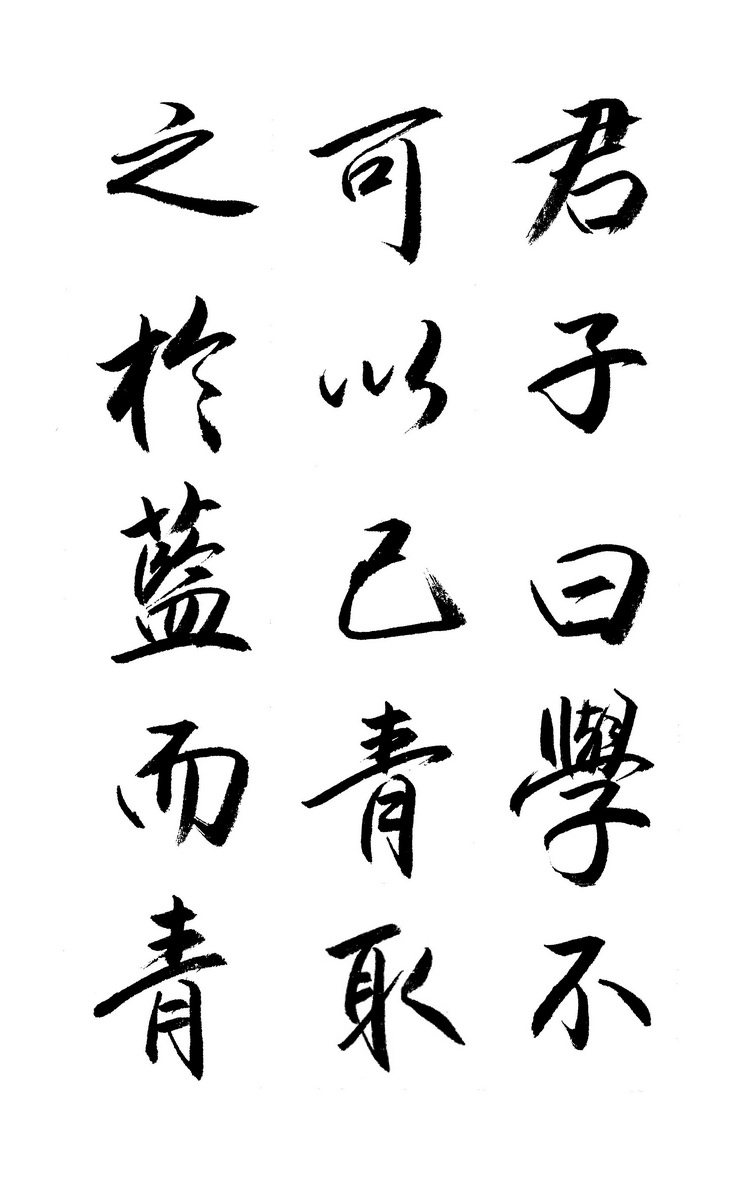 君子曰學不
可以已青取
之於藍而青